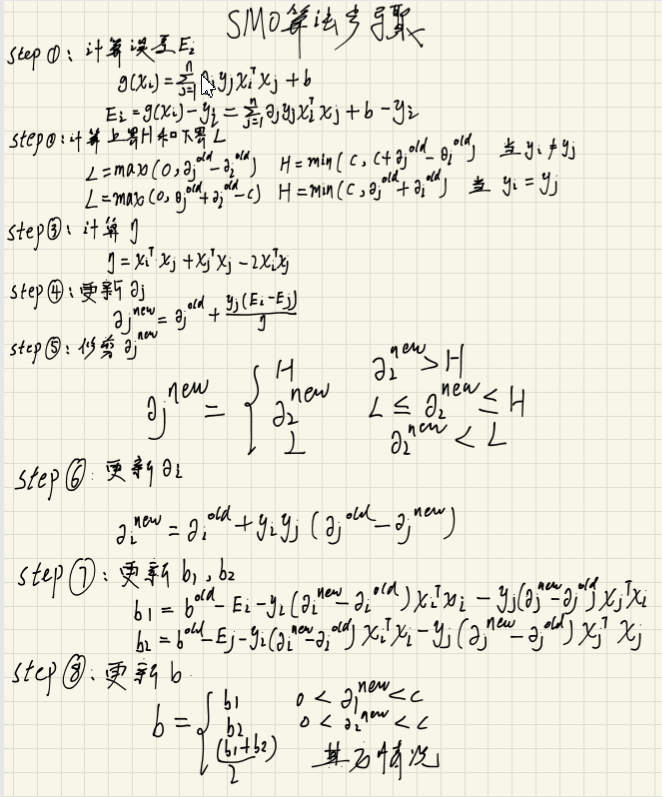 SMO算法步骤
step①: 计算误差Ei
g(xi)=∑(j=1→n) ∂jyjxiᵀxj+b
Ei=g(xi)-yi=∑(j=1→n) ∂jyjxiᵀxj+b-yi
step②:计算上界H和下界L
L=max(0,∂j^old-∂i^old) H=min(C,C+∂j^old-∂i^old) 当yi≠yj
L=max(0,∂j^old+∂i^old-C) H=min(C,∂j^old+∂i^old) 当 yi=yj
step③: 计算η
η=xiᵀxi+xjᵀxj-2xiᵀxj
step④:更新∂j
∂j^new=∂j^old+yj(Ei-Ej)/η
step⑤:修剪∂j^new
∂j^new={ H ∂2^new>H
∂2^new L≤∂2^new≤H
L ∂2^new<L
step⑥: 更新∂i
∂i^new=∂i^old+yiyj(∂j^old-∂j^new)
step⑦: 更新b1,b2
b1=b^old-Ei-yi(∂i^new-∂i^old)xiᵀxi-yj(∂j^new-∂j^old)xjᵀxi
b2=b^old-Ej-yi(∂i^new-∂i^old)xiᵀxj-yj(∂j^new-∂j^old)xjᵀxj
step⑧: 更新b
b={ b1 0<∂1^new<C
b2 0<∂2^new<C
(b1+b2)/2 其它情况